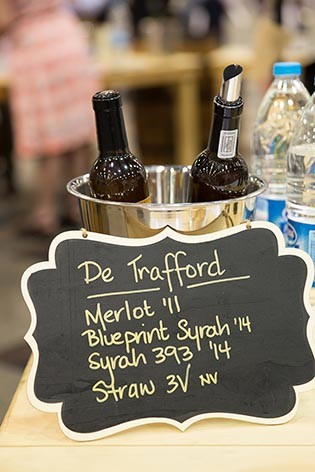 De Trafford
Merlot '11
Blueprint Syrah '14
Syrah 393 '14
Straw 3V NV